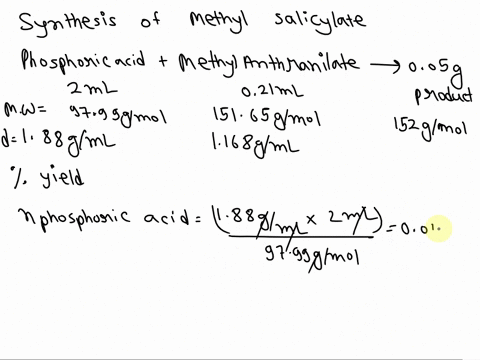 Synthesis of Methyl Salicylate
Phosphonic acid + Methyl Anthranilate → 0.05g
2mL 0.21mL product
M.W= 97.99g/mol 151.65g/mol 152g/mol
d=1.88g/mL 1.168g/mL
% yield
n phosphonic acid = (1.88g/mL × 2mL) = 0.01
97.99g/mol